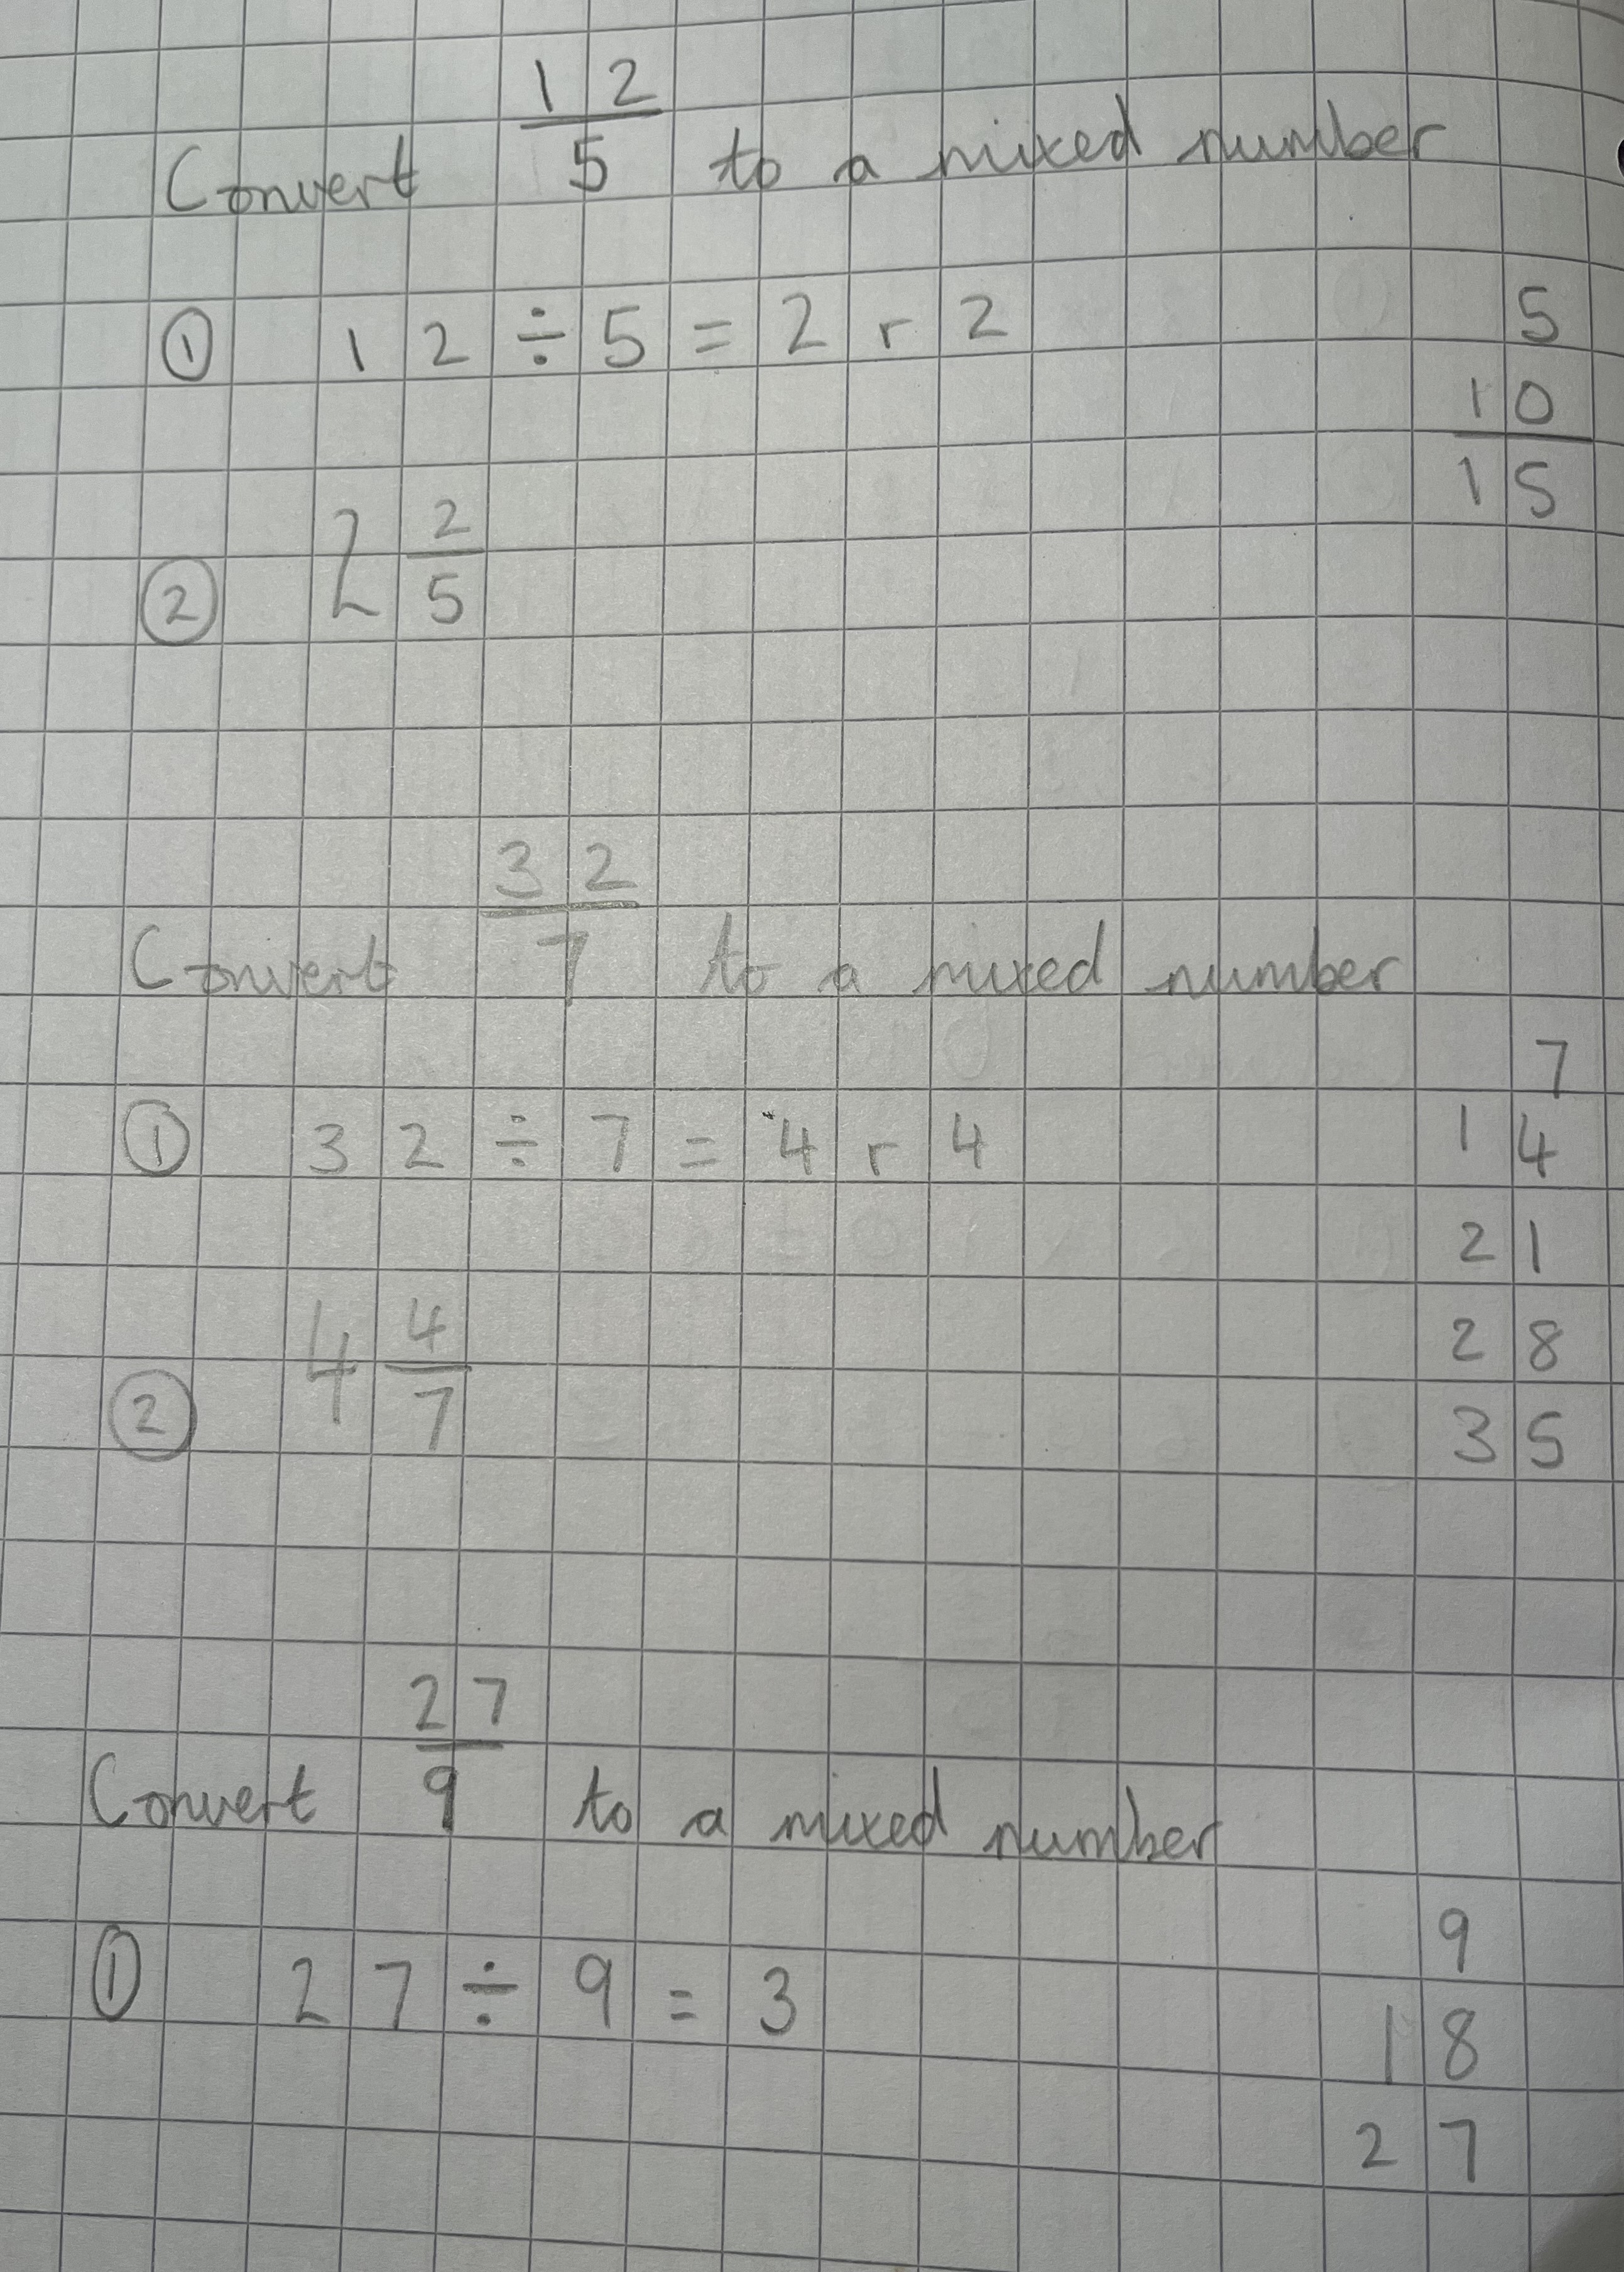 12
Convert — to a mixed number
5
① 12 ÷ 5 = 2 r 2
5
10
15
② 2 2/5
32
Convert — to a mixed number
7
7
① 32 ÷ 7 = 4 r 4
14
21
28
35
② 4 4/7
27
Convert — to a mixed number
9
① 27 ÷ 9 = 3
9
18
27